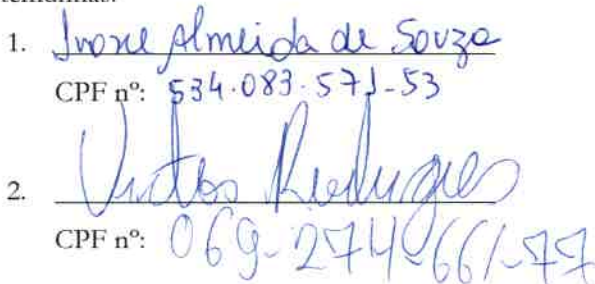 1. Ivone Almeida de Souza
CPF nº: 534.083.571-53
2. Victor Rodrigues
CPF nº: 069-274-661-77